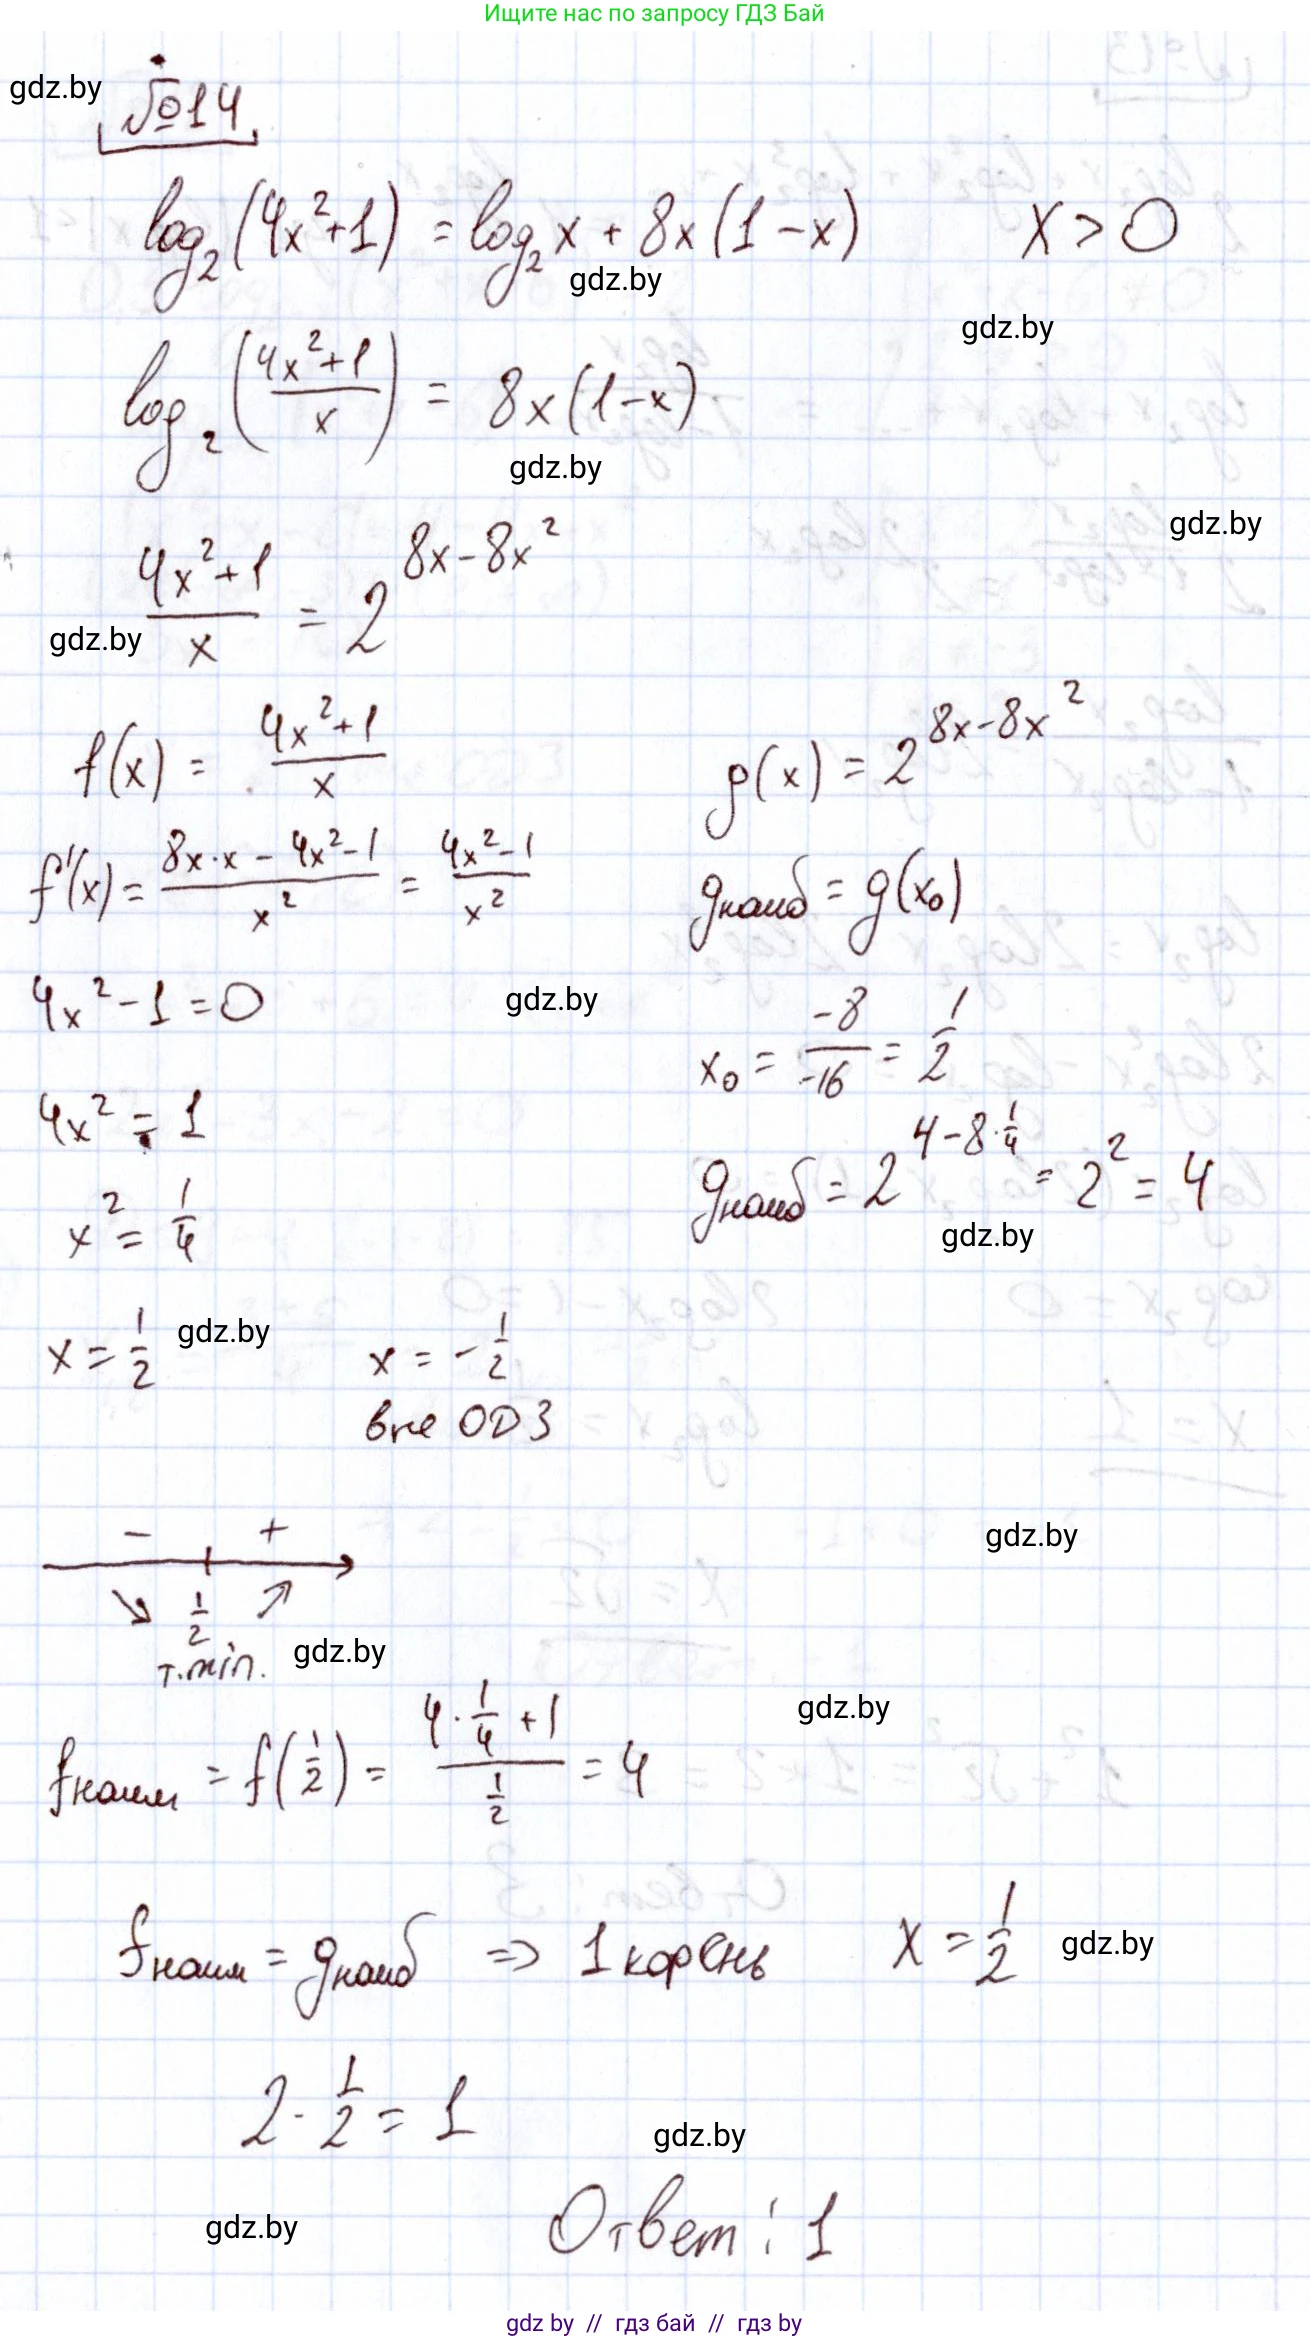 Ищите нас по запросу ГДЗ Бай
gdz.by
№14
log₂(4x²+1) = log₂x + 8x(1-x)    x > 0
gdz.by
gdz.by
log₂((4x²+1)/x) = 8x(1-x)
gdz.by
gdz.by
(4x²+1)/x = 2^(8x-8x²)
gdz.by
f(x) = (4x²+1)/x    g(x) = 2^(8x-8x²)
f'(x) = (8x·x - 4x²-1)/x² = (4x²-1)/x²    gнаиб = g(x₀)
4x²-1=0    gdz.by    x₀ = -8/-16 = 1/2
4x² = 1    gнаиб = 2^(4-8·1/4) = 2² = 4
gdz.by
x² = 1/4
x = 1/2    gdz.by    x = -1/2
вне ОДЗ
- +    gdz.by
1/2
т.min.    gdz.by
gdz.by
fнаим = f(1/2) = (4·1/4+1)/(1/2) = 4
fнаим = gнаиб => 1 корень    x = 1/2    gdz.by
2·1/2 = 1
gdz.by
gdz.by    Ответ: 1
gdz by // гдз бай // gdz by